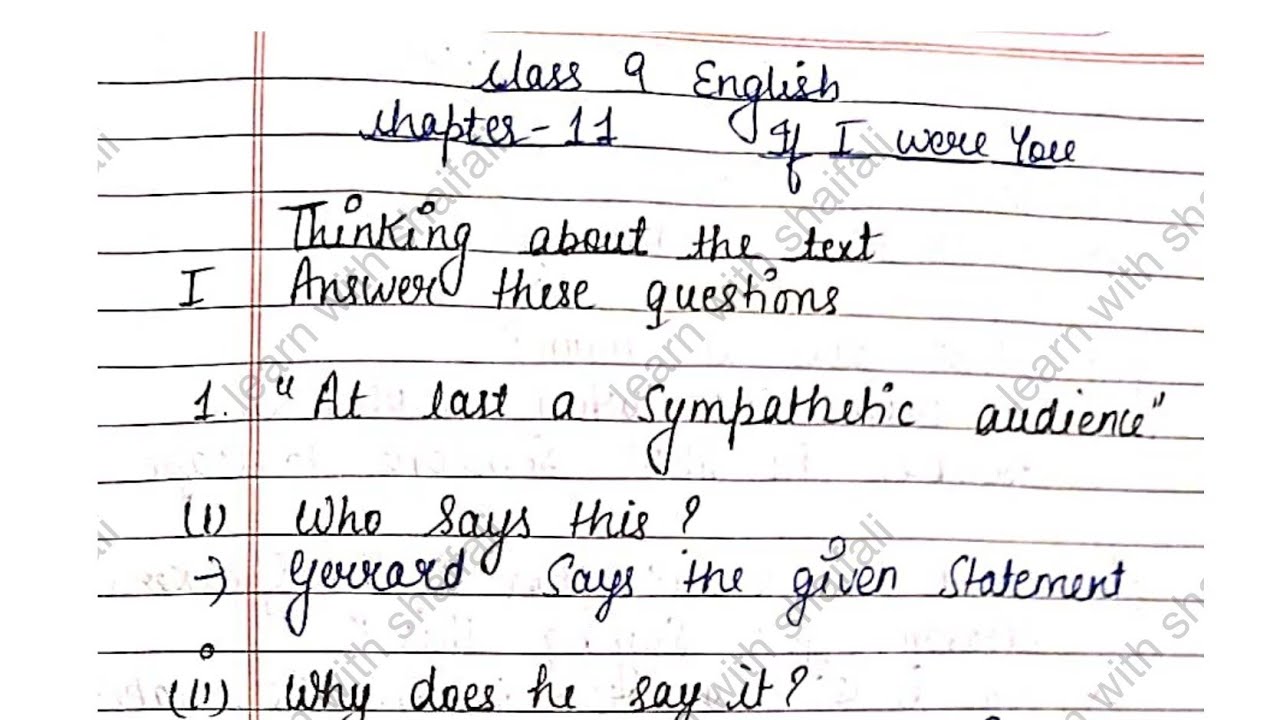 Class 9 English
Chapter-11 If I were You
Thinking about the text
I Answer these questions
1. "At last a sympathetic audience"
(i) Who says this?
→ Gerrard Says the given Statement
(ii) Why does he say it?
learn with shaifali
learn with shaifali
learn with shaifali